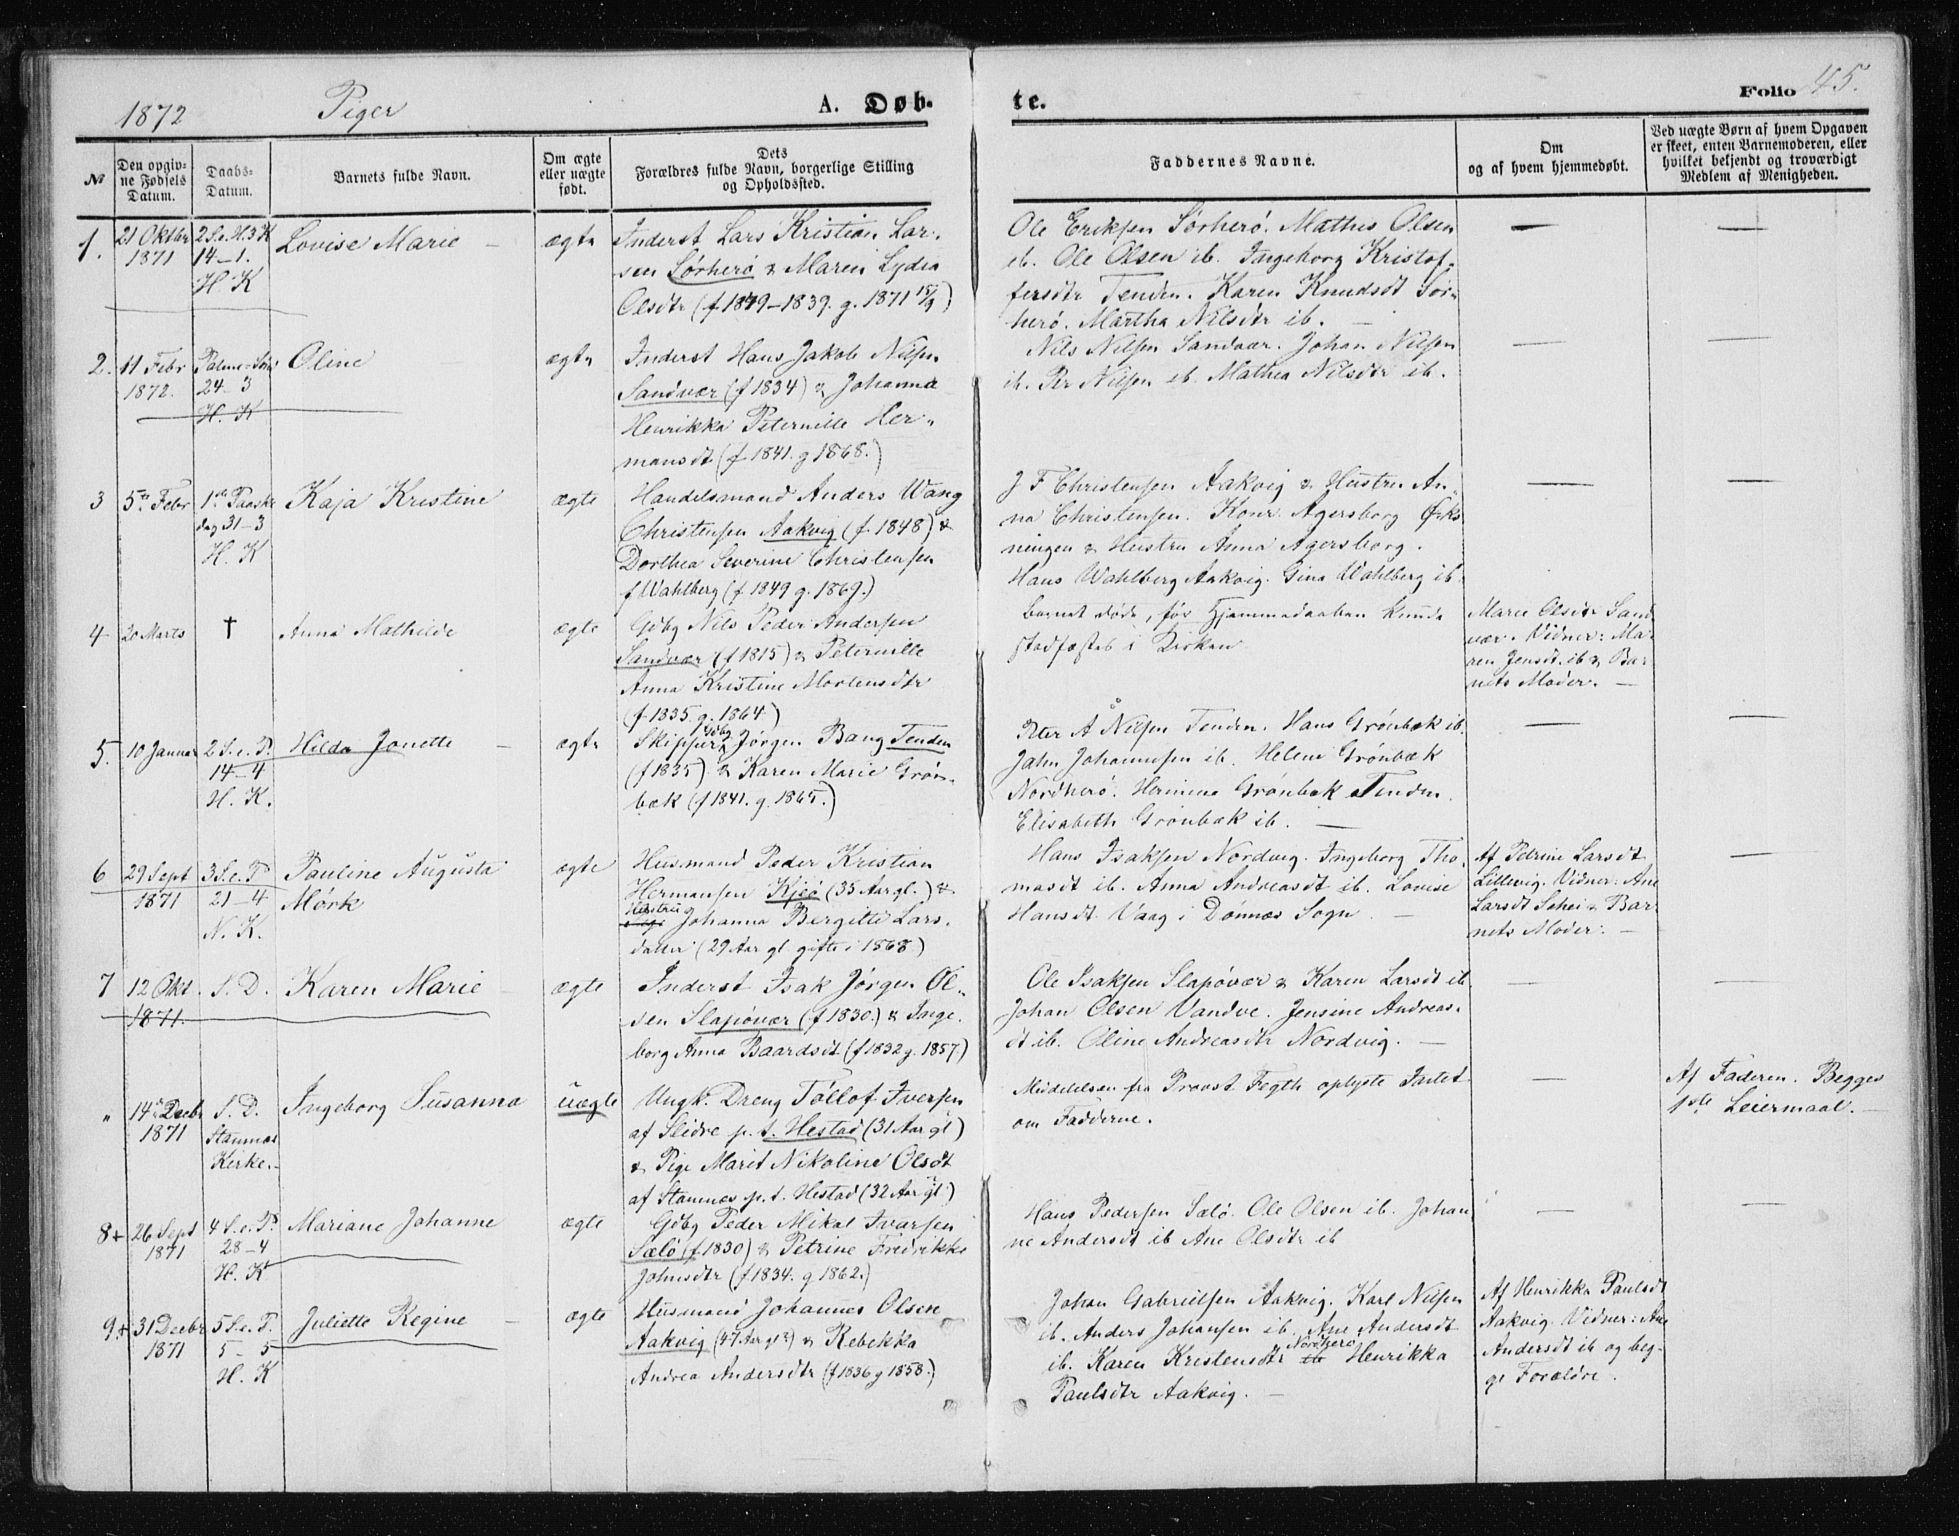 1872 Piger A. Døb- te. Folio 45.
№
Den opgiv-
ne Fødsels
Datum.
Daabs-
Datum.
Barnets fulde Navn.
Om ægte
eller uægte
født.
Dets
Forældres fulde Navn, borgerlige Stilling
og Opholdssted.
Faddernes Navne.
Om
og af hvem hjemmedøbt.
Ved uægte Børn af hvem Opgaven
er skeet, enten Barnemoderen, eller
hvilket bekjendt og troværdigt
Medlem af Menigheden.
1.
21 Oktbr
1871
2 S. e. H3K
14-1.
H K
Lovise Marie -
ægte
Inderst Lars Kristian Lar-
sen Sørherö & Maren Lydia
Olsdtr (f 1849-1839. g. 1871 15/9)
Ole Eriksen Sørherö. Mathis Olsen
ib. Ole Olsen ib. Ingeborg Kristof-
fersdtr Tenden. Karen Knudsdt Sör-
herö. Martha Nilsdtr ib. -
—
—
2.
11 Febr
1872.
Palme-Sønd
24- 3
H. K
Oline
ægte
Inderst Hans Jakob Nilsen
Sandvær (f 1834) & Johanna
Henrikka Peternille Her-
mansdt (f 1841. g 1868.)
Nils Nilsen Sandvær. Johan Nilsen
ib. Per Nilsen ib. Mathea Nilsdtr ib.
—
—
3
5te Febr
1ste Paaske
dag 31-3
H. K
Kaja Kristine
ægte
Handelsmand Anders Wang
Christensen Aakvig (f. 1848) &
Dorthea Severine Christensen
f Wahlberg (f 1849 g. 1869.)
J F Christensen Aakvig & Hustru An-
na Christensen. Konr. Agersborg Øks-
ningen & Hustru Anna Agersborg.
Hans Wahlberg Aakvig. Gina Wahlberg ib.
—
—
4
20 Marts
†
Anna Mathilde
ægte
Gdbg Nils Peder Andersen
Sandvær (f 1815) & Peternille
Anna Kristine Mortensdtr
(f 1835. g. 1864.)
Barnet døde, før Hjemmedaaben kunde
stadfæstes i Kirken
Marie Olsdtr Sand
vær. Vidner: Ma-
ren Jensdt. ib & Bar-
nets Moder. -
5.
10 Januar
2 S. e. P.
14-4
H. K.
Hilda Jonette -
ægte
Skipper & Gdbg Jørgen Bang Tenden
(f 1835) & Karen Marie Grön-
bæk (f 1841. g. 1865.)
Peter A Nilsen Tenden. Hans Grönbæk ib.
Jahn Johannesen ib. Helene Grönbæk
Nordherö. Hermine Grönbæk Tenden.
Elisabeth Grönbæk ib. -
—
—
6
29 Sept
1871
3 S. e. P
21-4
N. K.
Pauline Augusta
Mørk
ægte
Husmand Peder Kristian
Hermansen Kjeö (35 Aar gl.) &
Hustru Johanna Bergitte Lars-
datter (29 Aar gl. gifte i 1868)
Hans Isaksen Nordvig. Ingeborg Tho-
masdt ib. Anna Andreasdt ib. Lovise
Hansdt Vaag i Dønnes Sogn -
Af Petrine Larsdt
Lillevig. Vidner: Ane
Larsdt Sohei & Bar-
nets Moder. -
—
7
12 Okt.
1871.
S. D.
Karen Marie -
ægte
Inderst Isak Jørgen Ol-
sen Slapövær (f 1830.) & Inge-
borg Anna Baardsdt (f 1832 g. 1857.)
Ole Isaksen Slapövær & Karen Larsdt ib.
Johan Olsen Vandve. Jensine Andreas-
dt ib. Oline Andreasdtr Nordvig. -
—
—
"
14de Decbr
1871
S. D.
Stamnes
Kirke.-
Ingeborg Susanna
uægte
Ungk. Dreng Töllof Iversen
af Slidre p. t. Hestad (31 Aar gl)
& Pige Marit Nikoline Olsdt
af Stamnes p. t. Hestad (32 Aar gl.)
Meddelelsen fra Provst Fegth oplyste Intet
om Fadderne.
—
Af Faderen. Begges
1ste Leiermaal. -
8+
26 Sept
1871
4 S. e. P.
28-4
H. K
Mariane Johanne
ægte
Gdbg Peder Mikal Ivarsen
Sælö (f 1830) & Petrine Fredrikke
Johnsdtr (f 1834. g 1862.)
Hans Pedersen Sælö. Ole Olsen ib. Johan
ne Andersdt ib Ane Olsdtr ib
—
—
9+
31 Decbr
1871
5 S. e. P.
5- 5
H. K
Juliette Regine -
ægte
Husmand Johannes Olsen
Aakvig (47 Aar gl) & Rebekka
Andrea Andersdtr (f 1836 g 1858.)
Johan Gabrielsen Aakvig. Karl Nilsen
ib. Anders Johansen ib. Ane Andersdt
ib. Karen Kristensdtr Nordherö Henrikka
Paulsdtr Aakvig. -
Af Henrikka Paulsdt
Aakvig. Vidner: Ane
Andersdt ib og beg-
ge Forældre.